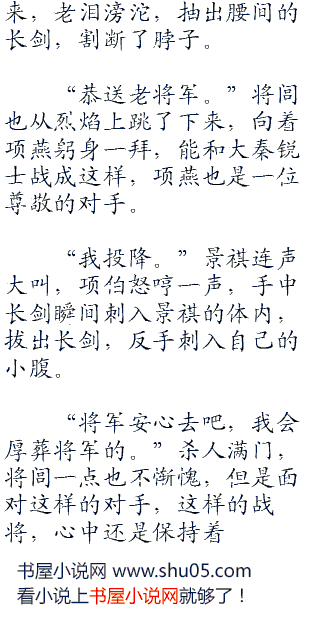 来，老泪滂沱，抽出腰间的
长剑，割断了脖子。
“恭送老将军。”将闾
也从烈焰上跳了下来，向着
项燕躬身一拜，能和大秦锐
士战成这样，项燕也是一位
尊敬的对手。
“我投降。”景祺连声
大叫，项伯怒哼一声，手中
长剑瞬间刺入景祺的体内，
拔出长剑，反手刺入自己的
小腹。
“将军安心去吧，我会
厚葬将军的。”杀人满门，
将闾一点也不惭愧，但是面
对这样的对手，这样的战
将，心中还是保持着
书屋小说网 www.shu05.com
看小说上书屋小说网就够了！